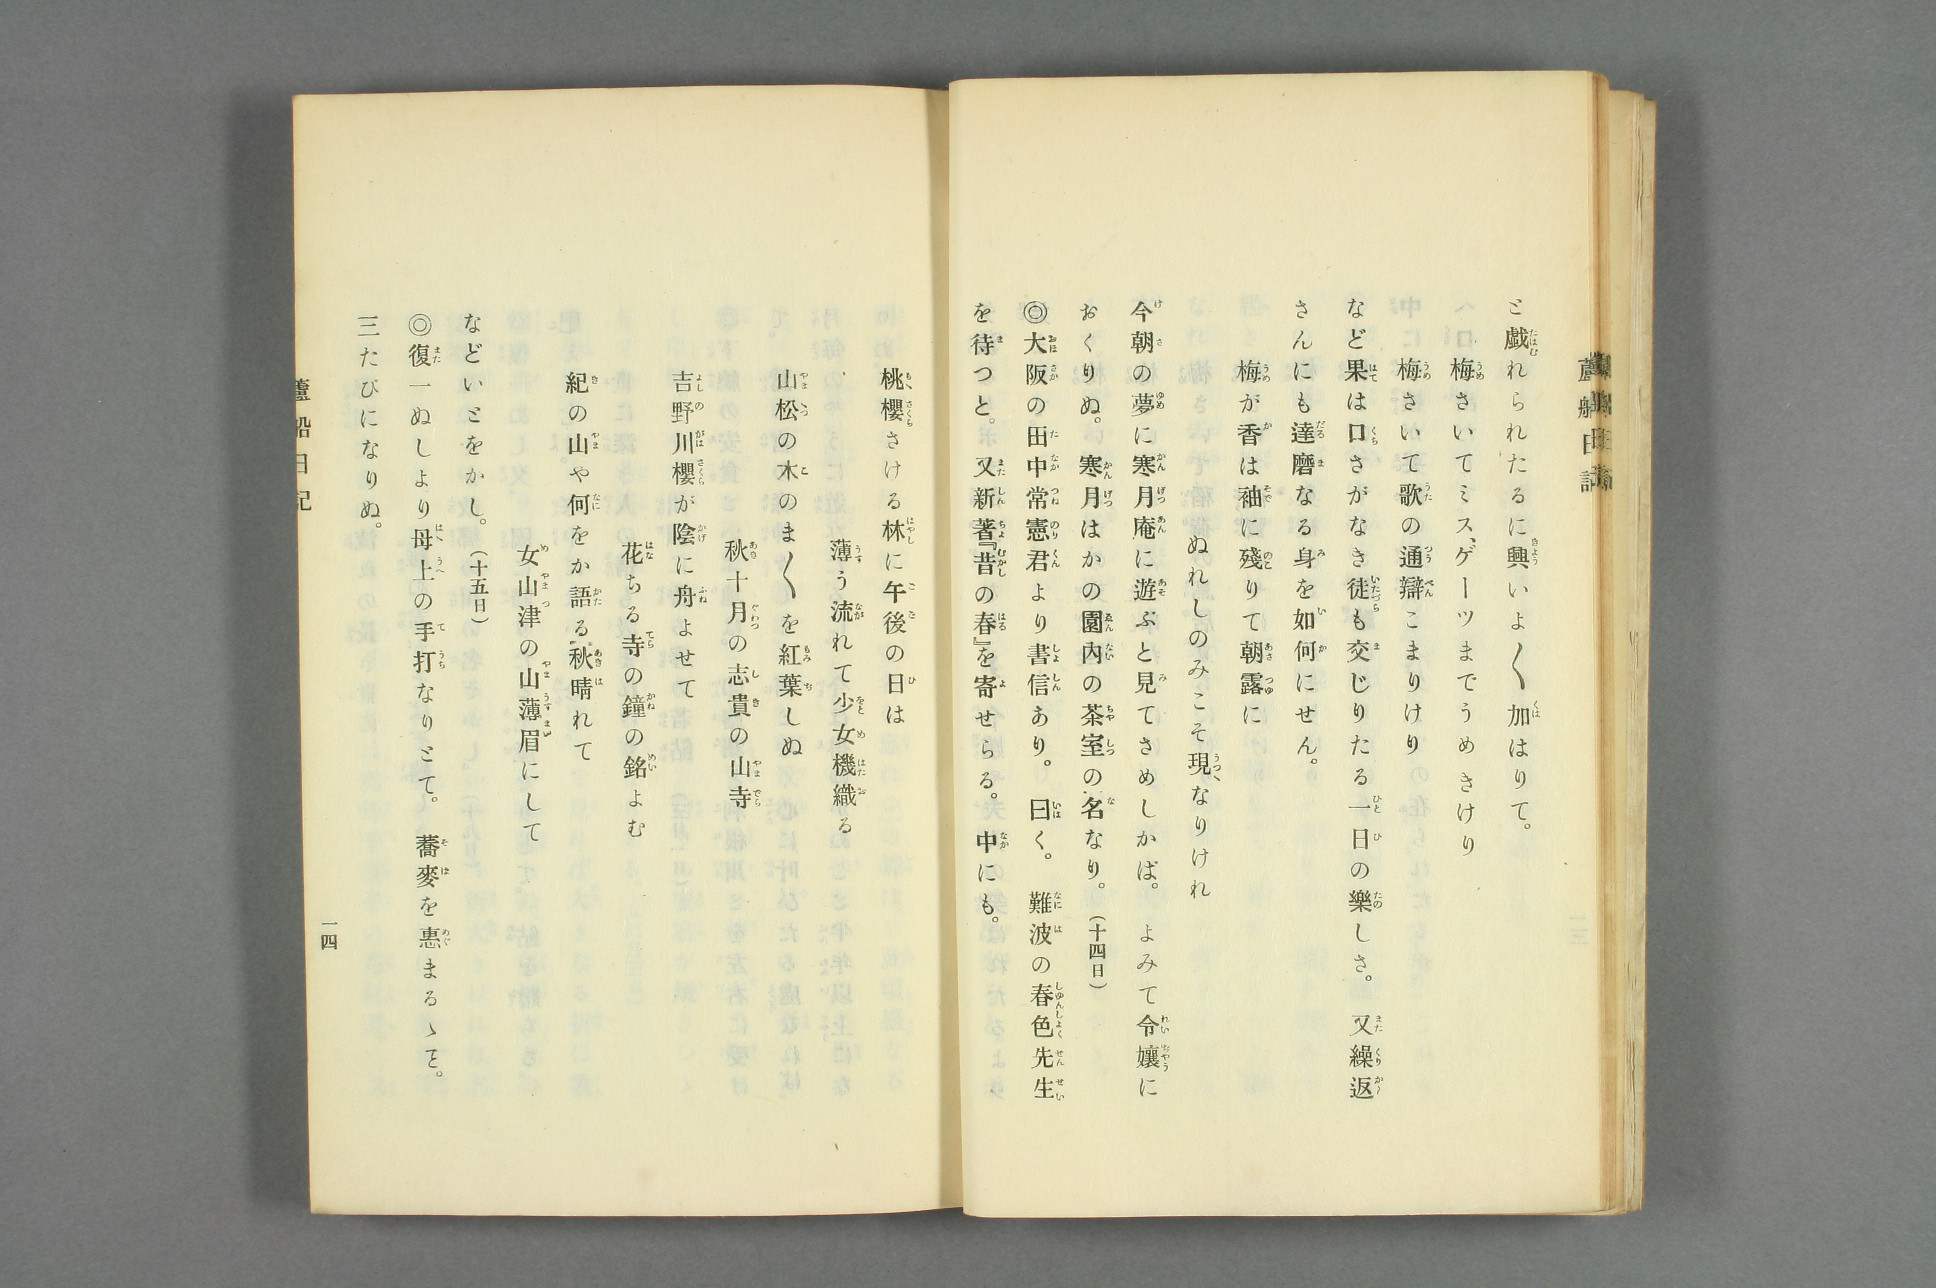 蘆船日記
と戯れられたるに興いよ〱加はりて。
梅さいてミス、ゲーツまでうめきけり
梅さいて歌の通辯こまりけり
など果は口さがなき徒も交じりたる一日の樂しさ。又繰返
さんにも達磨なる身を如何にせん。
梅が香は袖に殘りて朝露に
ぬれしのみこそ現なりけれ
今朝の夢に寒月庵に遊ぶと見てさめしかば。よみて令孃に
おくりぬ。寒月はかの園内の茶室の名なり。(十四日)
◎大阪の田中常憲君より書信あり。曰く。難波の春色先生
を待つと。又新著『昔の春』を寄せらる。中にも。
桃櫻さける林に午後の日は
薄う流れて少女機織る
山松の木のま〱を紅葉しぬ
秋十月の志貴の山寺
吉野川櫻が陰に舟よせて
花ちる寺の鐘の銘よむ
紀の山や何をか語る秋晴れて
女山津の山薄眉にして
などいとをかし。(十五日)
◎復一ぬしより母上の手打なりとて。蕎麥を惠まるゝこと。
三たびになりぬ。
蘆船日記
一四